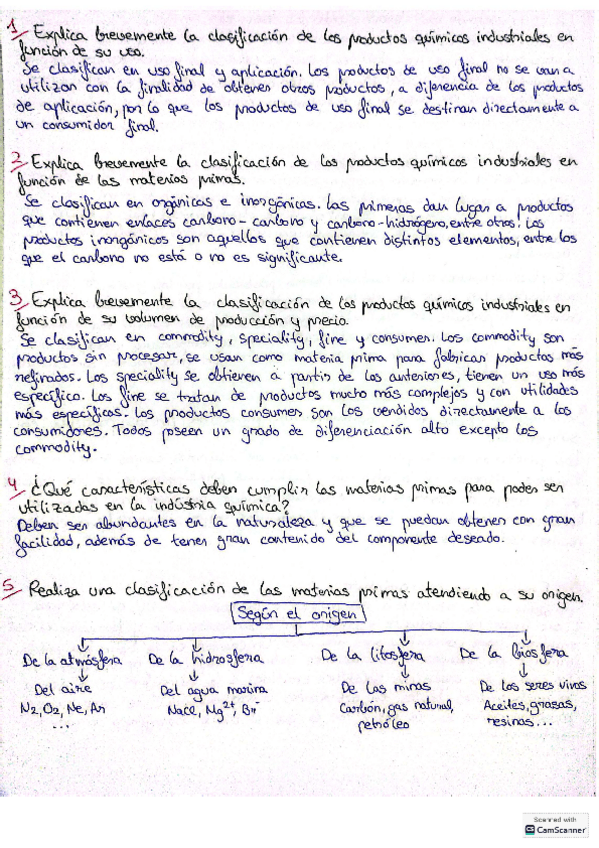 1 Explica brevemente la clasificación de los productos químicos industriales en
función de su uso.
Se clasifican en uso final y aplicación. Los productos de uso final no se van a
utilizar con la finalidad de obtener otros productos, a diferencia de los productos
de aplicación, por lo que los productos de uso final se destinan directamente a
un consumidor final.
2 Explica brevemente la clasificación de los productos químicos industriales en
función de las materias primas.
Se clasifican en orgánicas e inorgánicas. Las primeras dan lugar a productos
que contienen enlaces carbono-carbono y carbono-hidrógeno, entre otros. Los
productos inorgánicos son aquellos que contienen distintos elementos, entre los
que el carbono no está o no es significante.
3 Explica brevemente la clasificación de los productos químicos industriales en
función de su volumen de producción y precio.
Se clasifican en commodity, speciality, fine y consumer. Los commodity son
productos sin procesar, se usan como materia prima para fabricar productos más
refinados. Los speciality se obtienen a partir de los anteriores, tienen un uso más
específico. Los fine se tratan de productos mucho más complejos y con utilidades
más específicas. Los productos consumer son los vendidos directamente a los
consumidores. Todos poseen un grado de diferenciación alto excepto los
commodity.
4 ¿Qué características deben cumplir las materias primas para poder ser
utilizadas en la indústria química?
Deben ser abundantes en la naturaleza y que se puedan obtener con gran
facilidad, además de tener gran contenido del componente deseado.
5 Realiza una clasificación de las materias primas atendiendo a su origen.
Según el origen
De la atmósfera De la hidrosfera De la litosfera De la biosfera
Del aire Del agua marina De las minas De los seres vivos
N2, O2, Ne, Ar NaCl, Mg2+, Br- Carbón, gas natural, Aceites, grasas,
... petróleo resinas...
Scanned with
CS CamScanner